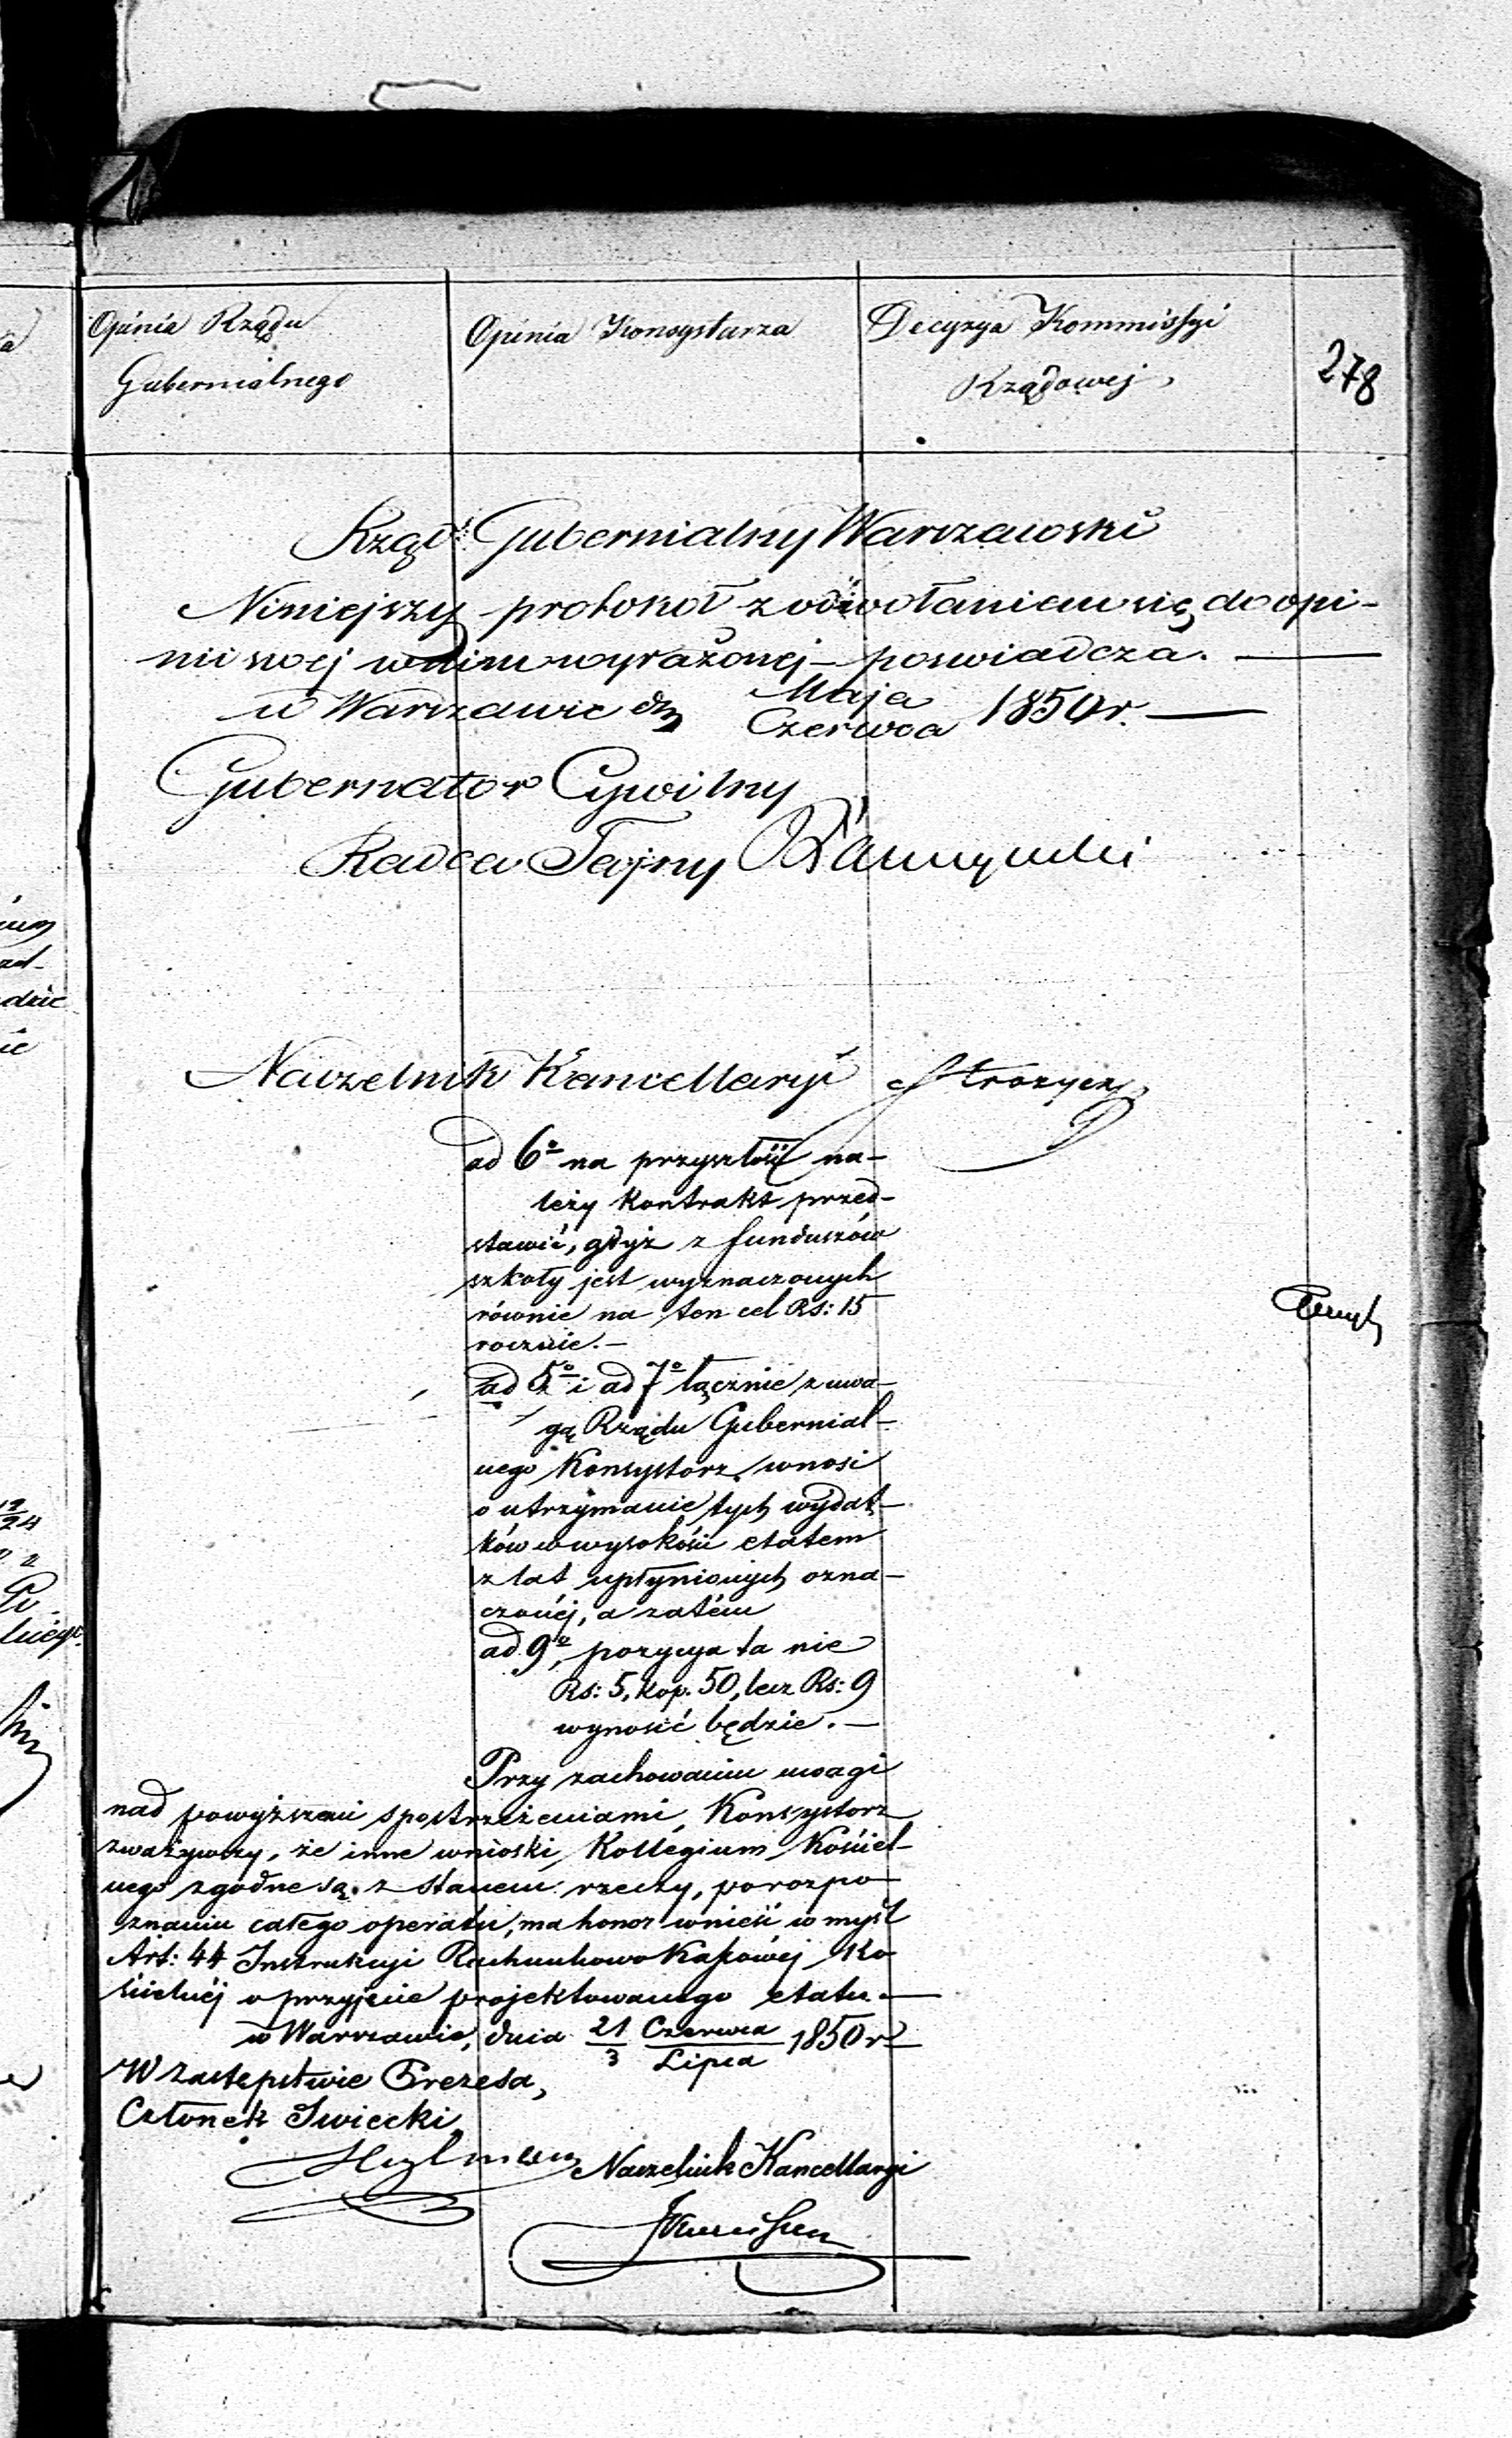 Opinia Rządu
Gubernialnego
Opinia Konsystorza
Decyzya Kommissyi
Rządowej
278
Rząd Gubernialny Warszawski
Niniejszy protokół z odwołaniem się do opi-
nii swej w nim wyrażonej – poświadcza. —
w Warszawie dn Maja
Czerwca 1850 r. —
Gubernator Cywilny
Radca Tajny
Naczelnik Kancellaryi
ad 6o na przyszłość na-
leży kontrakt przed-
stawić, gdyż z funduszów
szkoły jest wyznaczonych
równie na ten cel Rs: 15
rocznie. –
ad 5o i ad 7o łącznie z uwa-
gą Rządu Gubernial-
nego Konsystorz wnosi
o utrzymanie tych wydat-
ków w wysokości etatem
z lat upłynionych ozna-
czonéj, a zatém
ad 9o, pozycya ta nie
Rs: 5, kop. 50, lecz Rs: 9
wynosić będzie. —
Przy zachowaniu uwagi
nad powyższemi spostrzeżeniami, Konsystorz
zważywszy, że inne wnioski Kollegium Kościel-
nego zgodne są z stanem rzeczy, po rozpo-
znaniu całego operatu, ma honor wnieść w myśl
Art: 44 Instrukcyi Rachunkowo Kassowéj Ko-
ścielnéj o przyjęcie projektowanego etatu. —
w Warszawie, dnia 21/3 Czerwca/Lipca 1850 r.
W zastępstwie Prezesa,
Członek Świecki
Naczelnik Kancellaryi